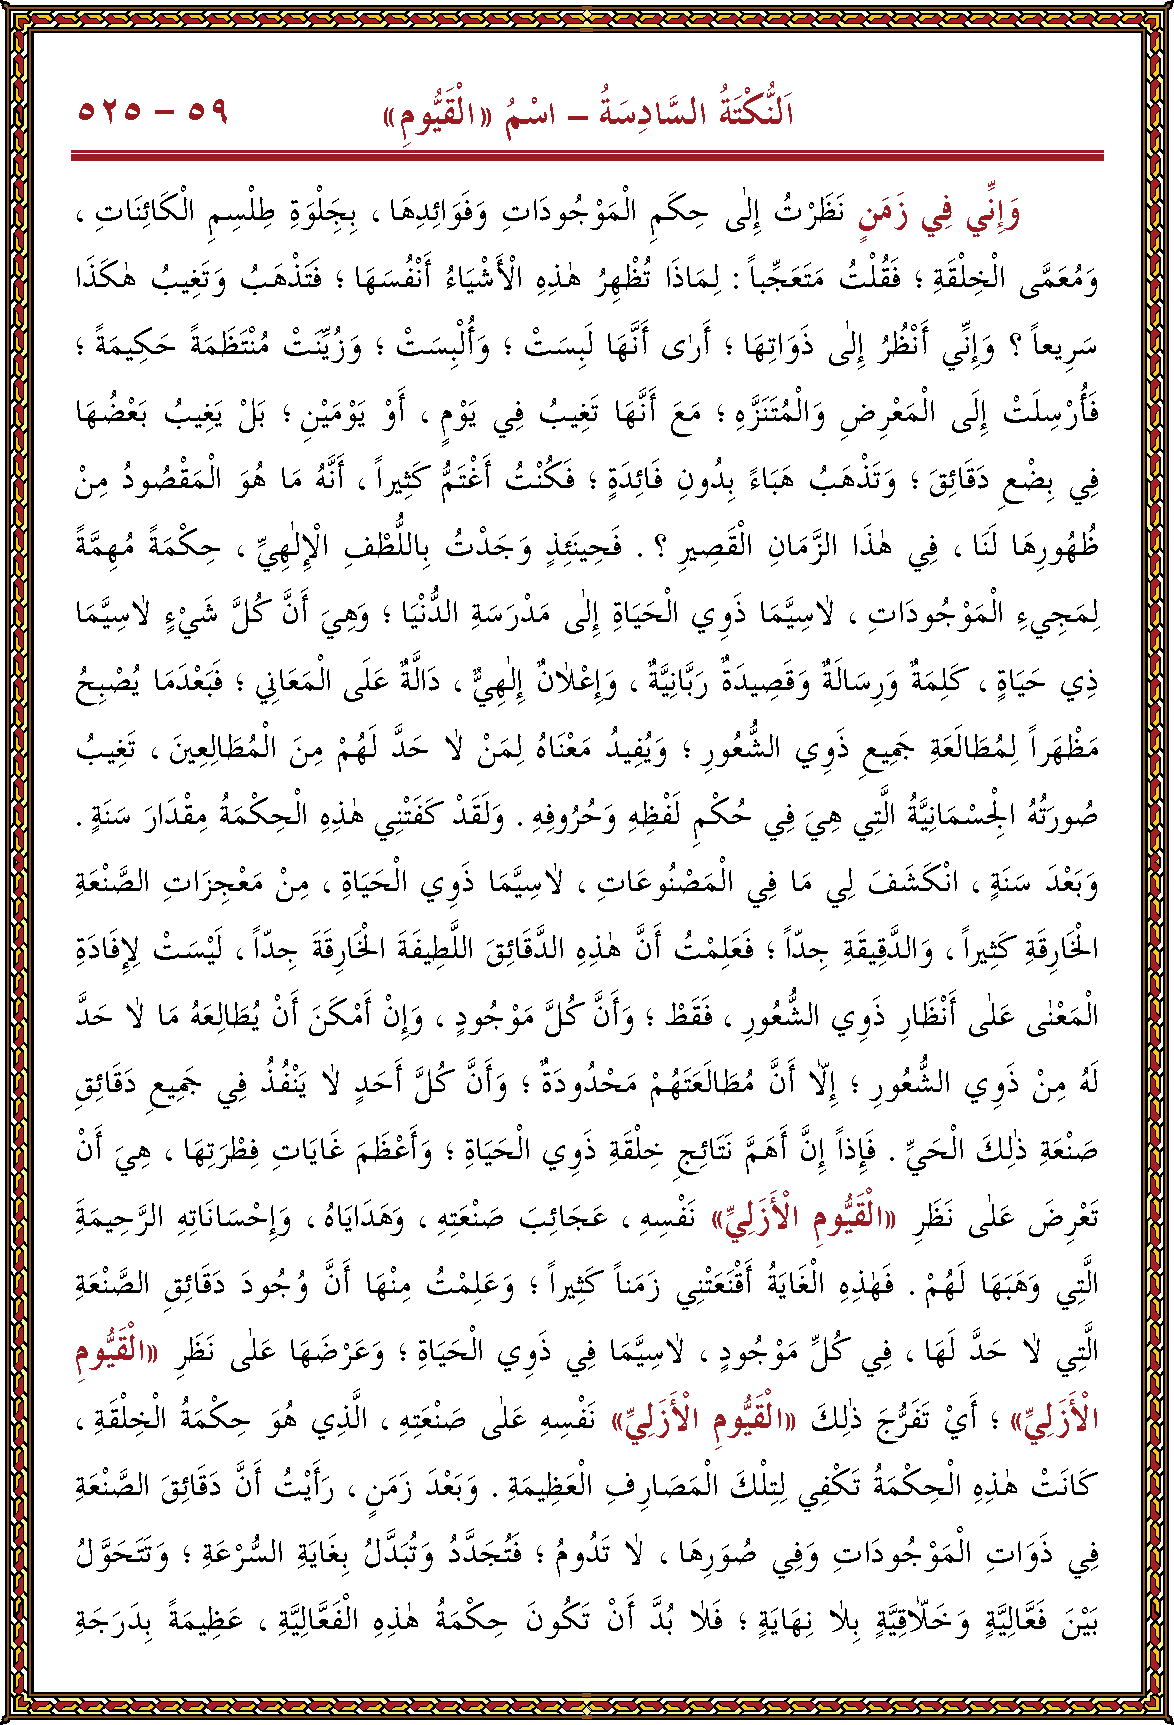 اَلنُّكْتَةُ السَّادِسَةُ – اسْمُ «الْقَيُّومِ» ٥٩ – ٥٢٥
وَإِنِّي فِي زَمَنٍ نَظَرْتُ إِلٰى حِكَمِ الْمَوْجُودَاتِ وَفَوَائِدِهَا ، بِجَلْوَةِ طِلْسِمِ الْكَائِنَاتِ ،
وَمُعَمَّى الْخِلْقَةِ ؛ فَقُلْتُ مَتَعَجِّباً : لِمَاذَا تُظْهِرُ هٰذِهِ الْأَشْيَاءُ أَنْفُسَهَا ؛ فَتَذْهَبُ وَتَغِيبُ هٰكَذَا
سَرِيعاً ؟ وَإِنِّي أَنْظُرُ إِلٰى ذَوَاتِهَا ؛ أَرٰى أَنَّهَا لَبِسَتْ ؛ وَأُلْبِسَتْ ؛ وَزُيِّنَتْ مُنْتَظَمَةً حَكِيمَةً ؛
فَأُرْسِلَتْ إِلَى الْمَعْرِضِ وَالْمُتَنَزَّهِ ؛ مَعَ أَنَّهَا تَغِيبُ فِي يَوْمٍ ، أَوْ يَوْمَيْنِ ؛ بَلْ يَغِيبُ بَعْضُهَا
فِي بِضْعِ دَقَائِقَ ؛ وَتَذْهَبُ هَبَاءً بِدُونِ فَائِدَةٍ ؛ فَكُنْتُ أَغْتَمُّ كَثِيراً ، أَنَّهُ مَا هُوَ الْمَقْصُودُ مِنْ
ظُهُورِهَا لَنَا ، فِي هٰذَا الزَّمَانِ الْقَصِيرِ ؟ . فَحِينَئِذٍ وَجَدْتُ بِاللُّطْفِ الْإِلٰهِيِّ ، حِكْمَةً مُهِمَّةً
لِمَجِيءِ الْمَوْجُودَاتِ ، لاٰسِيَّمَا ذَوِي الْحَيَاةِ إِلٰى مَدْرَسَةِ الدُّنْيَا ؛ وَهِيَ أَنَّ كُلَّ شَيْءٍ لاٰسِيَّمَا
ذِي حَيَاةٍ ، كَلِمَةٌ وَرِسَالَةٌ وَقَصِيدَةٌ رَبَّانِيَّةٌ ، وَإِعْلاٰنٌ إِلٰهِيٌّ ، دَالَّةٌ عَلَى الْمَعَانِي ؛ فَبَعْدَمَا يُصْبِحُ
مَظْهَراً لِمُطَالَعَةِ جَمِيعِ ذَوِي الشُّعُورِ ؛ وَيُفِيدُ مَعْنَاهُ لِمَنْ لاٰ حَدَّ لَهُمْ مِنَ الْمُطَالِعِينَ ، تَغِيبُ
صُورَتُهُ الْجِسْمَانِيَّةُ الَّتِي هِيَ فِي حُكْمِ لَفْظِهِ وَحُرُوفِهِ . وَلَقَدْ كَفَتْنِي هٰذِهِ الْحِكْمَةُ مِقْدَارَ سَنَةٍ .
وَبَعْدَ سَنَةٍ ، انْكَشَفَ لِي مَا فِي الْمَصْنُوعَاتِ ، لاٰسِيَّمَا ذَوِي الْحَيَاةِ ، مِنْ مَعْجِزَاتِ الصَّنْعَةِ
الْخَارِقَةِ كَثِيراً ، وَالدَّقِيقَةِ جِدّاً ؛ فَعَلِمْتُ أَنَّ هٰذِهِ الدَّقَائِقَ اللَّطِيفَةَ الْخَارِقَةَ جِدّاً ، لَيْسَتْ لِإِفَادَةِ
الْمَعْنٰى عَلٰى أَنْظَارِ ذَوِي الشُّعُورِ ، فَقَطْ ؛ وَأَنَّ كُلَّ مَوْجُودٍ ، وَإِنْ أَمْكَنَ أَنْ يُطَالِعَهُ مَا لاٰ حَدَّ
لَهُ مِنْ ذَوِي الشُّعُورِ ؛ إِلاّٰ أَنَّ مُطَالَعَتَهُمْ مَحْدُودَةٌ ؛ وَأَنَّ كُلَّ أَحَدٍ لاٰ يَنْفُذُ فِي جَمِيعِ دَقَائِقِ
صَنْعَةِ ذٰلِكَ الْحَيِّ . فَإِذاً إِنَّ أَهَمَّ نَتَائِجِ خِلْقَةِ ذَوِي الْحَيَاةِ ؛ وَأَعْظَمَ غَايَاتِ فِطْرَتِهَا ، هِيَ أَنْ
تَعْرِضَ عَلٰى نَظَرِ «الْقَيُّومِ الْأَزَلِيِّ» نَفْسِهِ ، عَجَائِبَ صَنْعَتِهِ ، وَهَدَايَاهُ ، وَإِحْسَانَاتِهِ الرَّحِيمَةَ
الَّتِي وَهَبَهَا لَهُمْ . فَهٰذِهِ الْغَايَةُ أَقْنَعَتْنِي زَمَناً كَثِيراً ؛ وَعَلِمْتُ مِنْهَا أَنَّ وُجُودَ دَقَائِقِ الصَّنْعَةِ
الَّتِي لاٰ حَدَّ لَهَا ، فِي كُلِّ مَوْجُودٍ ، لاٰسِيَّمَا فِي ذَوِي الْحَيَاةِ ؛ وَعَرْضَهَا عَلٰى نَظَرِ «الْقَيُّومِ
الْأَزَلِيِّ» ؛ أَيْ تَفَرُّجَ ذٰلِكَ «الْقَيُّومِ الْأَزَلِيِّ» نَفْسِهِ عَلٰى صَنْعَتِهِ ، الَّذِي هُوَ حِكْمَةُ الْخِلْقَةِ ،
كَانَتْ هٰذِهِ الْحِكْمَةُ تَكْفِي لِتِلْكَ الْمَصَارِفِ الْعَظِيمَةِ . وَبَعْدَ زَمَنٍ ، رَأَيْتُ أَنَّ دَقَائِقَ الصَّنْعَةِ
فِي ذَوَاتِ الْمَوْجُودَاتِ وَفِي صُوَرِهَا ، لاٰ تَدُومُ ؛ فَتُجَدَّدُ وَتُبَدَّلُ بِغَايَةِ السُّرْعَةِ ؛ وَتَتَحَوَّلُ
بَيْنَ فَعَّالِيَّةٍ وَخَلاّٰقِيَّةٍ بِلاٰ نِهَايَةٍ ؛ فَلاٰ بُدَّ أَنْ تَكُونَ حِكْمَةُ هٰذِهِ الْفَعَّالِيَّةِ ، عَظِيمَةً بِدَرَجَةِ